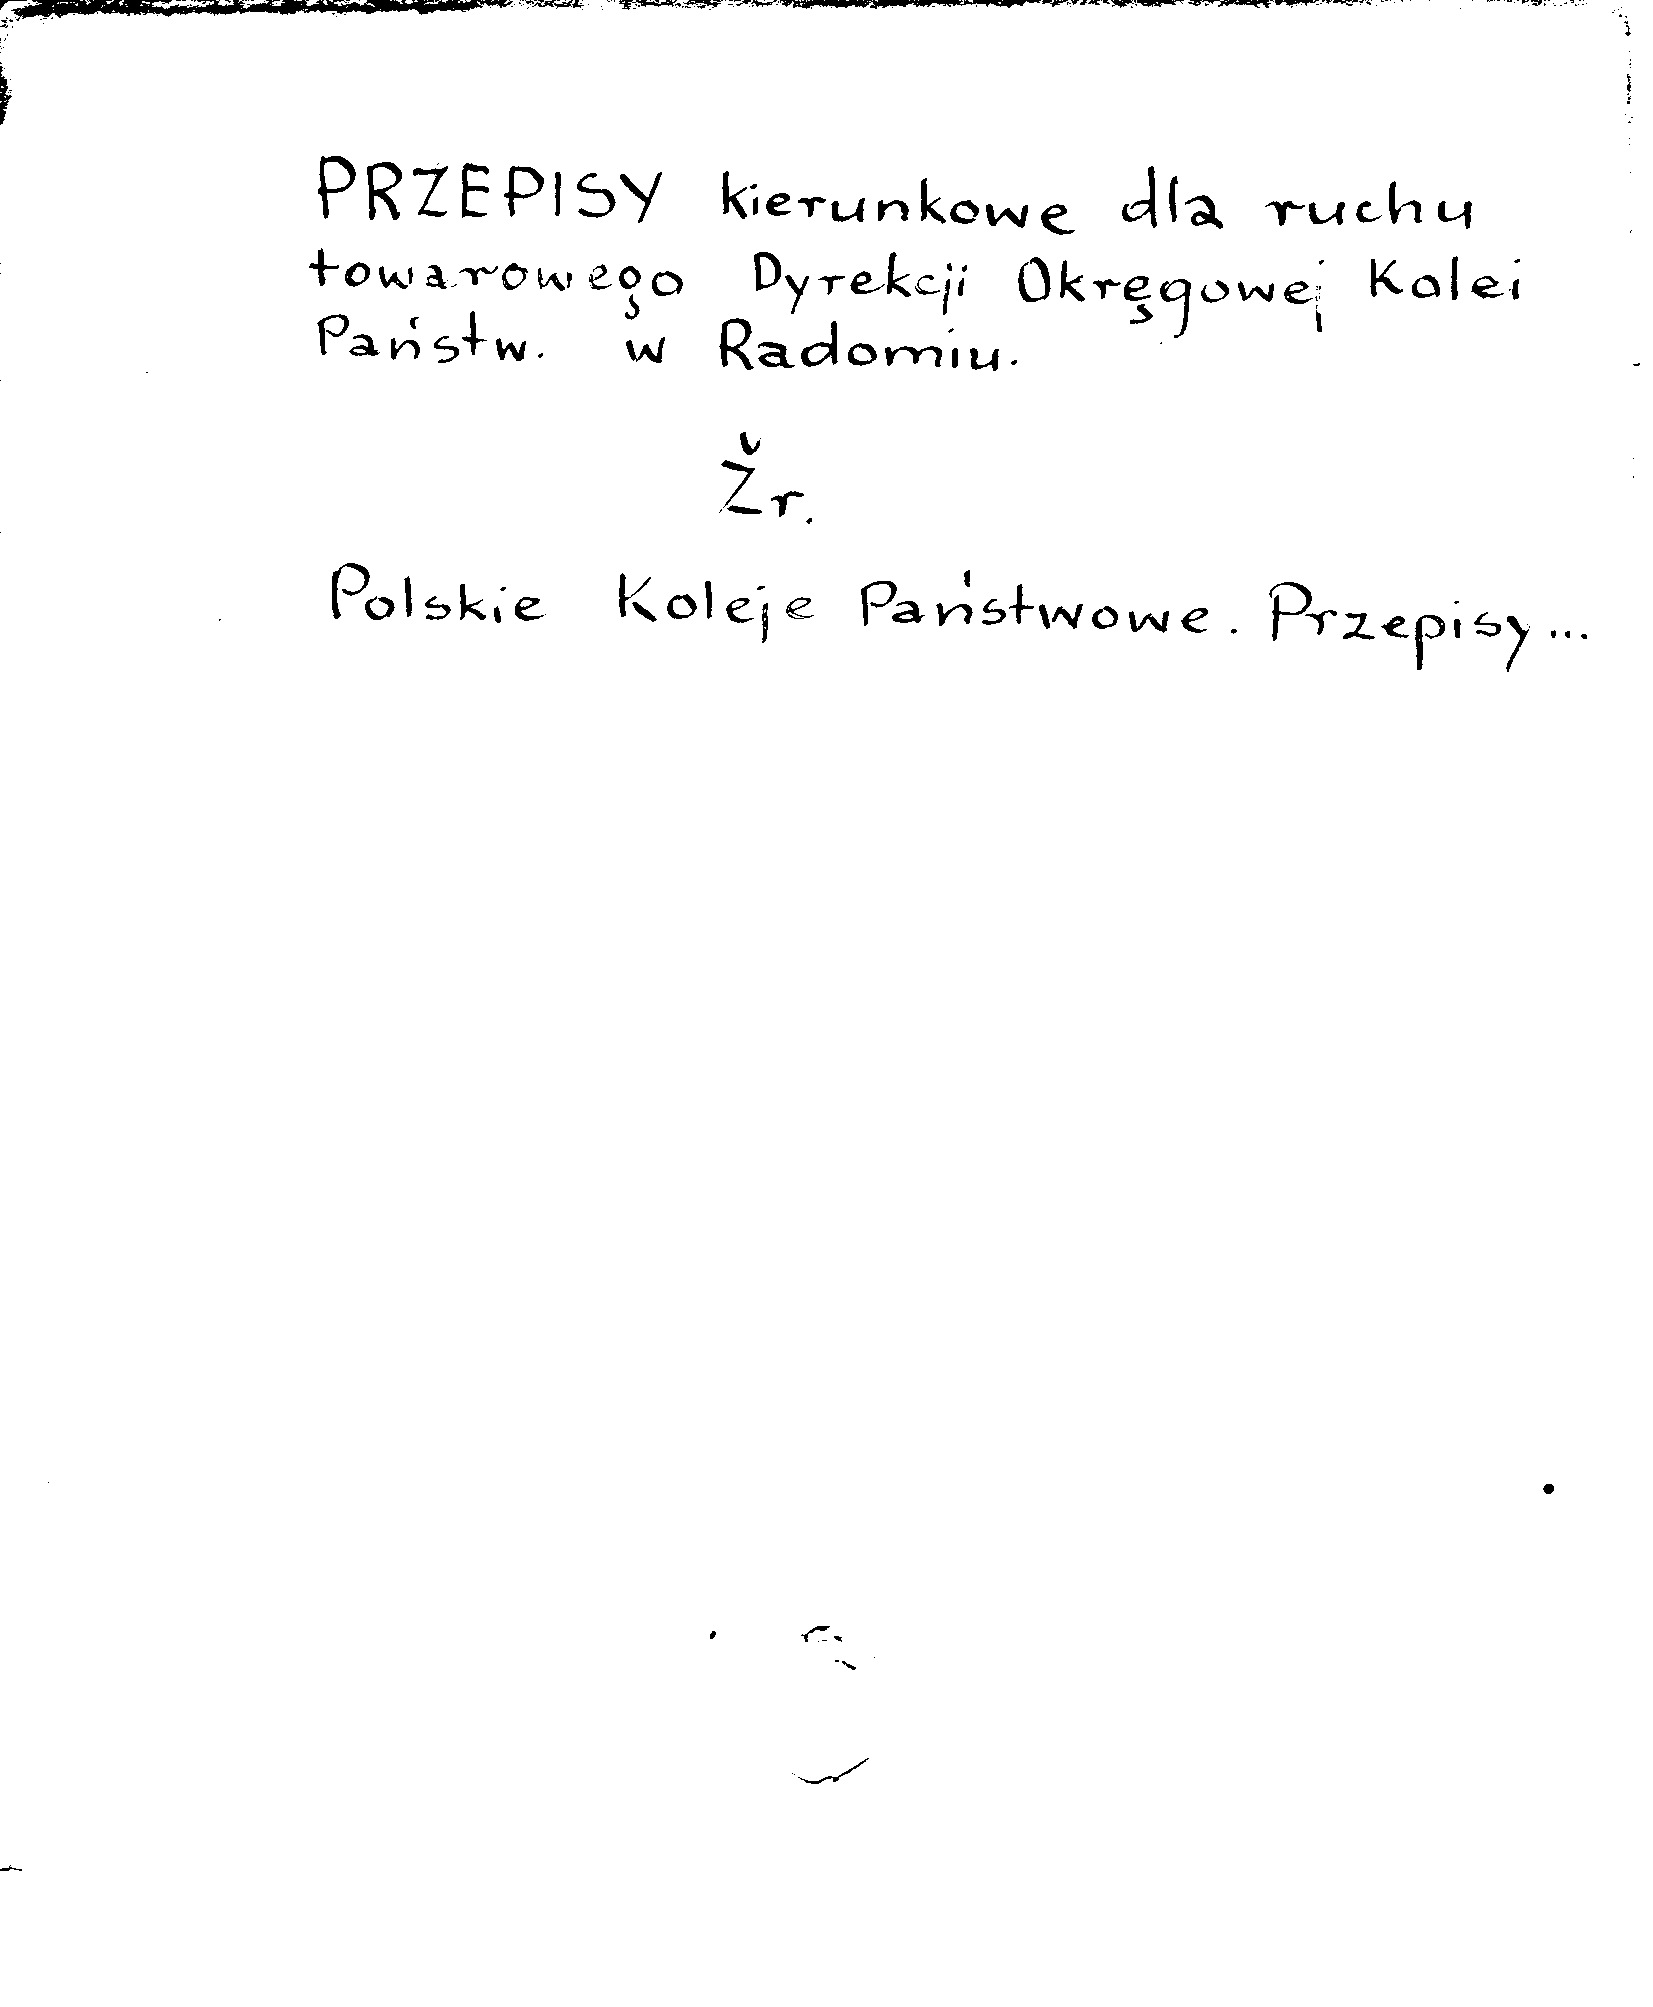 PRZEPISY kierunkowe dla ruchu
towarowego Dyrekcji Okręgowej Kolei
Państw. w Radomiu.
Źr.
Polskie Koleje Państwowe. Przepisy...